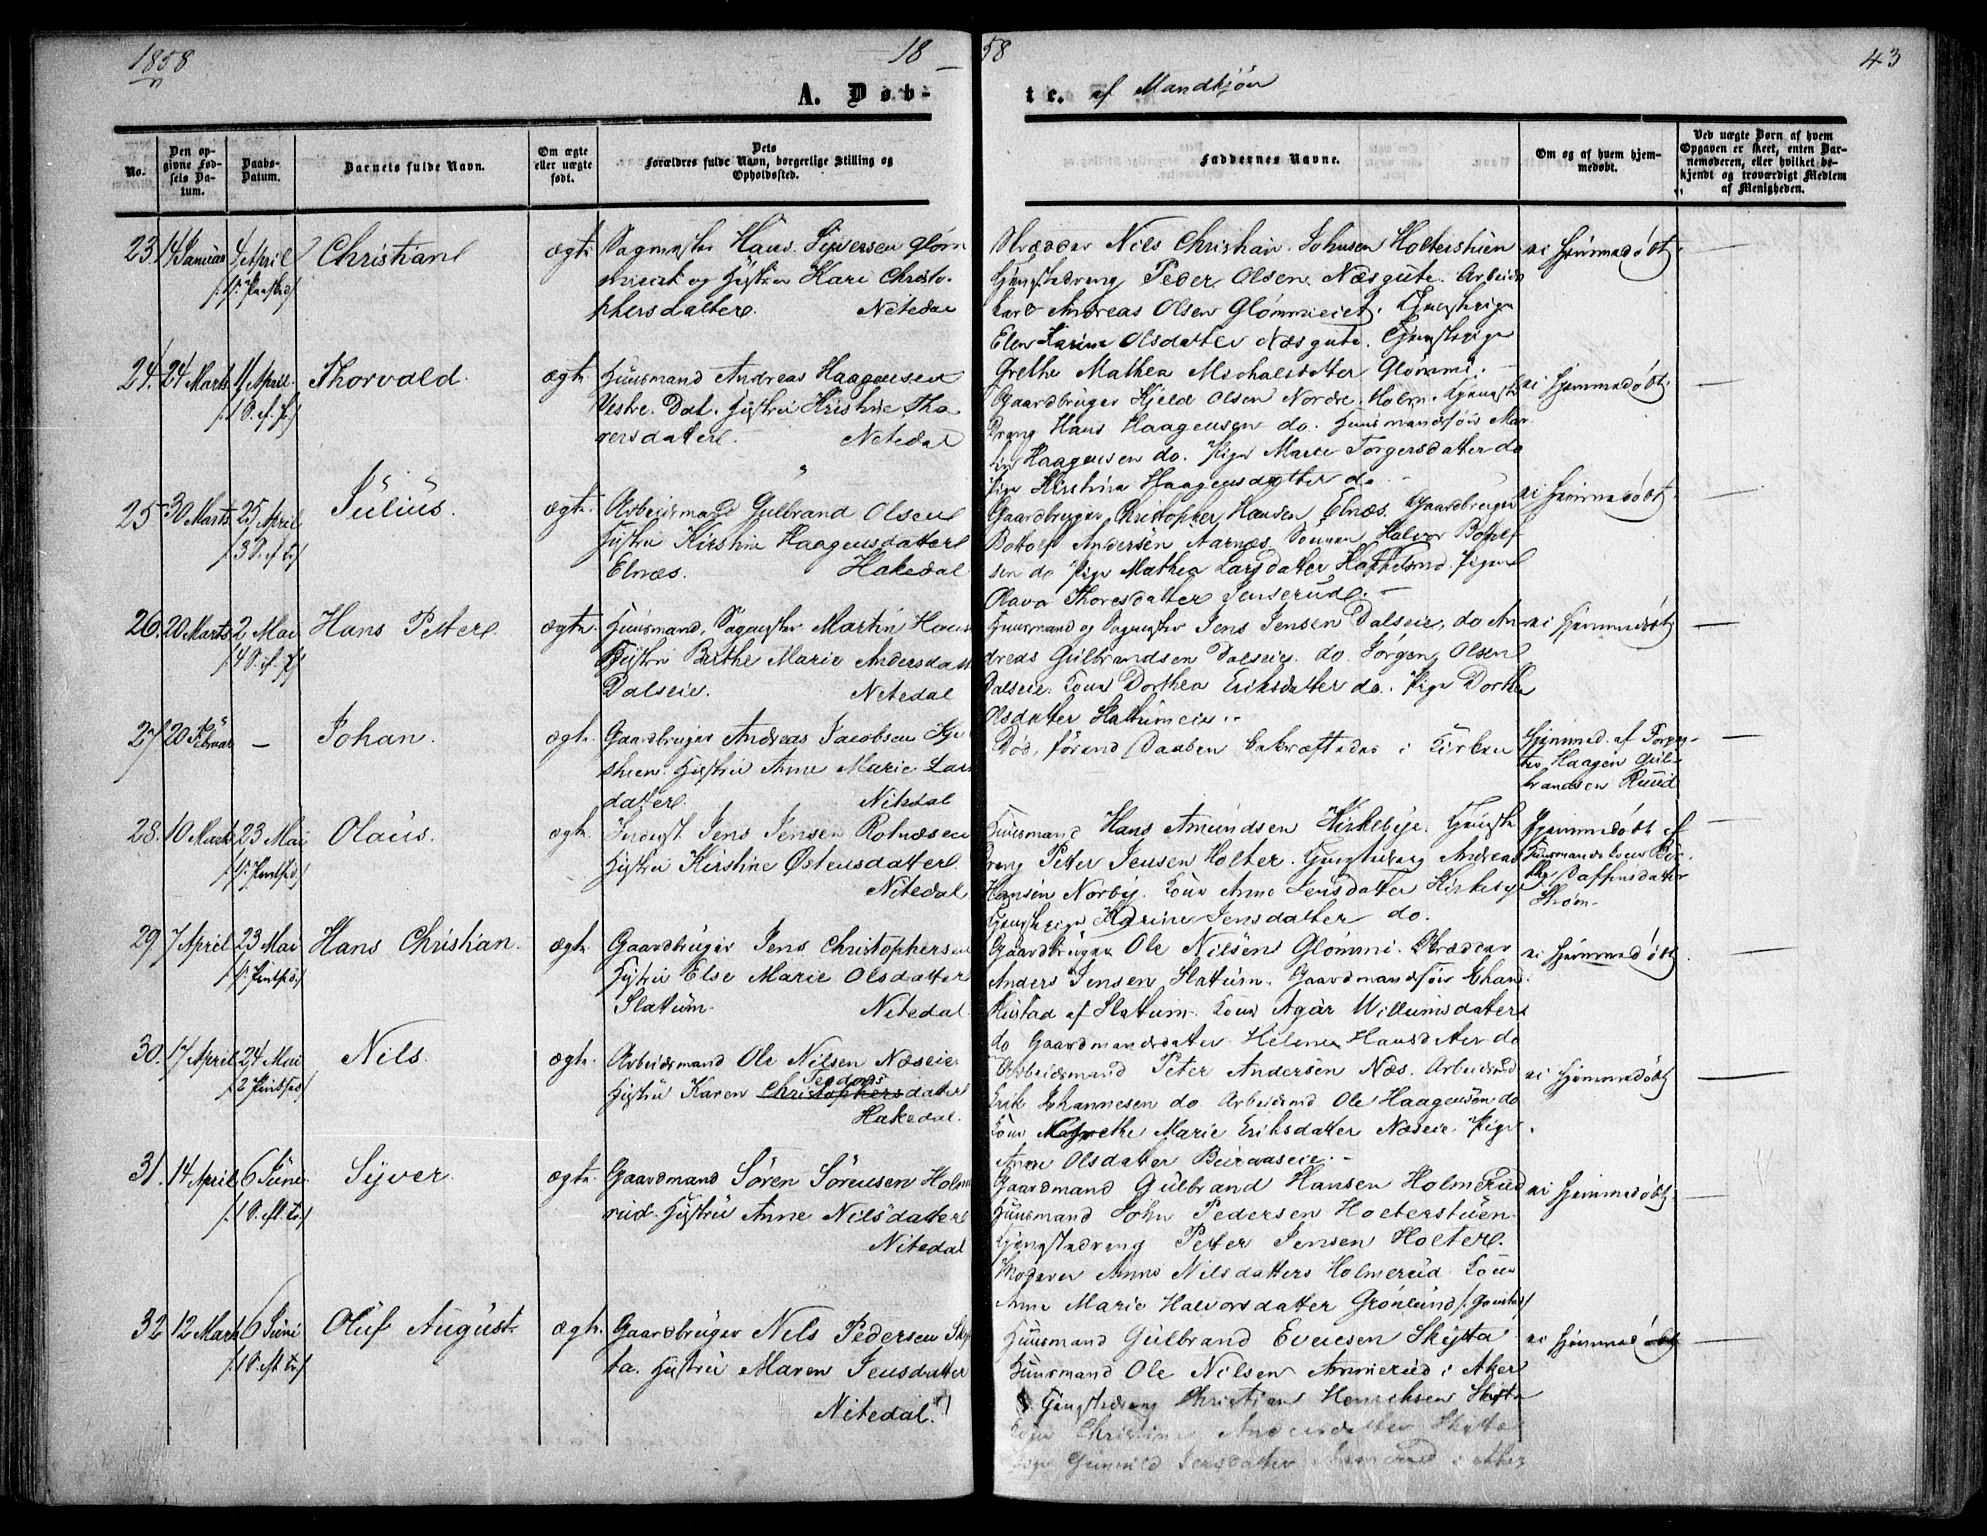 1858
18 — 58
43
A. Døb-
te. af Mandkjøn
No.
Den op-
givne Fød-
sels Da-
tum.
Daabs-
Datum.
Barnets fulde Navn.
Om ægte
eller uægte
født.
Dets
Forældres fulde Navn, borgerlige Stilling og
Opholdssted.
Faddernes Navne.
Om og af hvem hjem-
medøbt.
Ved uægte Børn af hvem
Opgaven er skeet, enten Bar-
nemoderen, eller hvilket be-
kjendt og troværdigt Medlem
af Menigheden.
23. 14 Januar 4 April Christian ægte
Sagmester Hans Syversen Gløm
mieiet og Hustru Kari Christo-
phersdatter. Nitedal
Skrædder Nils Christian Johnsen Holterstuen
Tjenestedreng Peder Olsen Næsgute. Arbeids
karl Andreas Olsen Glømmieiet. Tjenestepige
Elen Karine Olsdatter Næsgute. Tjenestepige
Grethe Mathea Michalsdatter Glømmi.
ei hjemmedøbt —
24. 24 Marts 11 April Thorvald ægte
/1 S. ef. P./
Huusmand Andreas Haagensen
Vestre Dal. Hustru Kirstine Tho
rersdatter. Nitedal
Gaardbruger Kjeld Olsen Nordre Holm. Tjeneste
Dreng Hans Haagensen do. Huusmandssøn Mar
tin Haagensen do. Pige Marie Torgersdatter do
Pige Kirstine Haagensdatter do.
ei hjemmedøbt —
25 30 Marts 25 April Julius. ægte
/3 S. ef. P./
Arbeidsmand Gulbrand Olsen
Hustru Kirstine Haagensdatter
Elnæs. Hakedal
Gaardbruger Christopher Hansen Elnæs. Gaardbruger
Bottolf Andersen Aarnæs. Sønnen Halvor Bottolf
sen do Pige Mathea Larsdatter
Olava Thoresdatter Jenserud.
ei hjemmedøbt —
26. 20 Marts 2 Mai Hans Petter ægte
/4 S. ef. P./
Huusmand, Sagmester Martin Hans
Hustru Berthe Marie Andersdatt
Dalseie. Nitedal
Huusmand og Sagmester Jens Jensen Dalseie, do An
dreas Gulbrandsen Dalseie. do. Jørgen Olsen
Dalseie. Kone Dorthea Eriksdatter do. Pige Dorthe
Olsdatter Slattumeie.
ei hjemmedøbt —
27 20 Februar — Johan. ægte
Gaardbruger Andreas Jacobsen
Hustru Anne Marie Lars
datter. Nitedal
Død, førend Daaben bekræftedes i Kirken
Hjemmed. af
Haagen Gul-
brandsen Ruud
28. 10 Marts 23 Mai Olaus. ægte
/1. Pintsed/
Inderst Jens Jensen Rotnæseie
Hustru Kirstine Østensdatter
Nitedal
Huusmand Hans Amundsen Kirkebye. Tjeneste
Dreng Petter Jensen Holter. Tjenestedreng Andreas
Hansen Norby. Kone Anne Jensdatter Kirkebye
Tjenestepige Karine Jensdatter do.
Hjemmedøbt af
Huusmandskone
Staffensdatter
Strøm
29. 7 April 23 Mai Hans Christian. ægte
/1. Pintsed/
Gaardbruger Jens Christophersen
Hustru Else Marie Olsdatter
Slattum. Nitedal.
Gaardbruger Ole Nilsen Glømmi. Skrædder
Anders Jensen Slattum. Gaardmandssøn Johan
Kone Agar Willumsdatter
do Gaardmandsdatter Helene Hansdatter do
ei hjemmedøbt —
30. 17 April 24 Mai Nils. ægte
/2 Pintsed/
Arbeidsmand Ole Nilsen Næseie.
Hustru Karen Christophersdatter
Teodors
Hakedal.
Arbeidsmand Peter Andersen Næs. Arbeidsmd
Erik Johannesen do Arbeidsmd Ole Haagensen do
Kone Marie Eriksdatter Næseie. Pige
Anne Olsdatter
ei hjemmedøbt —
31. 14 April 6 Juni Syver ægte
/1 S. eft. Tr./
Gaardmand Søren Sørensen Holme
rud. Hustru Anne Nilsdatter
Nitedal
Gaardmand Gulbrand Hansen Holmerud
Huusmand John Pedersen Holterstuen.
Tjenestedreng Petter Jensen Holter.
Anne Nilsdatter Holmerud. Kone
Anne Marie Halvorsdatter Grønlund
ei hjemmedøbt —
32 12 Marts 6 Juni Oluf August. ægte.
/1 S. eft. Tr./
Gaardbruger Nils Pedersen Sky
ta. Hustru Maren Jensdatter
Nitedal.
Huusmand Gulbrand Evensen Skytta
Huusmand Ole Nilsen Ammerud i Aker
Tjenestedreng Christian Henriksen Skytta
Kone Christine Andersdatter Skytta
Pige Gunnild Jensdatter Ammerud i Aker
ei hjemmedøbt —